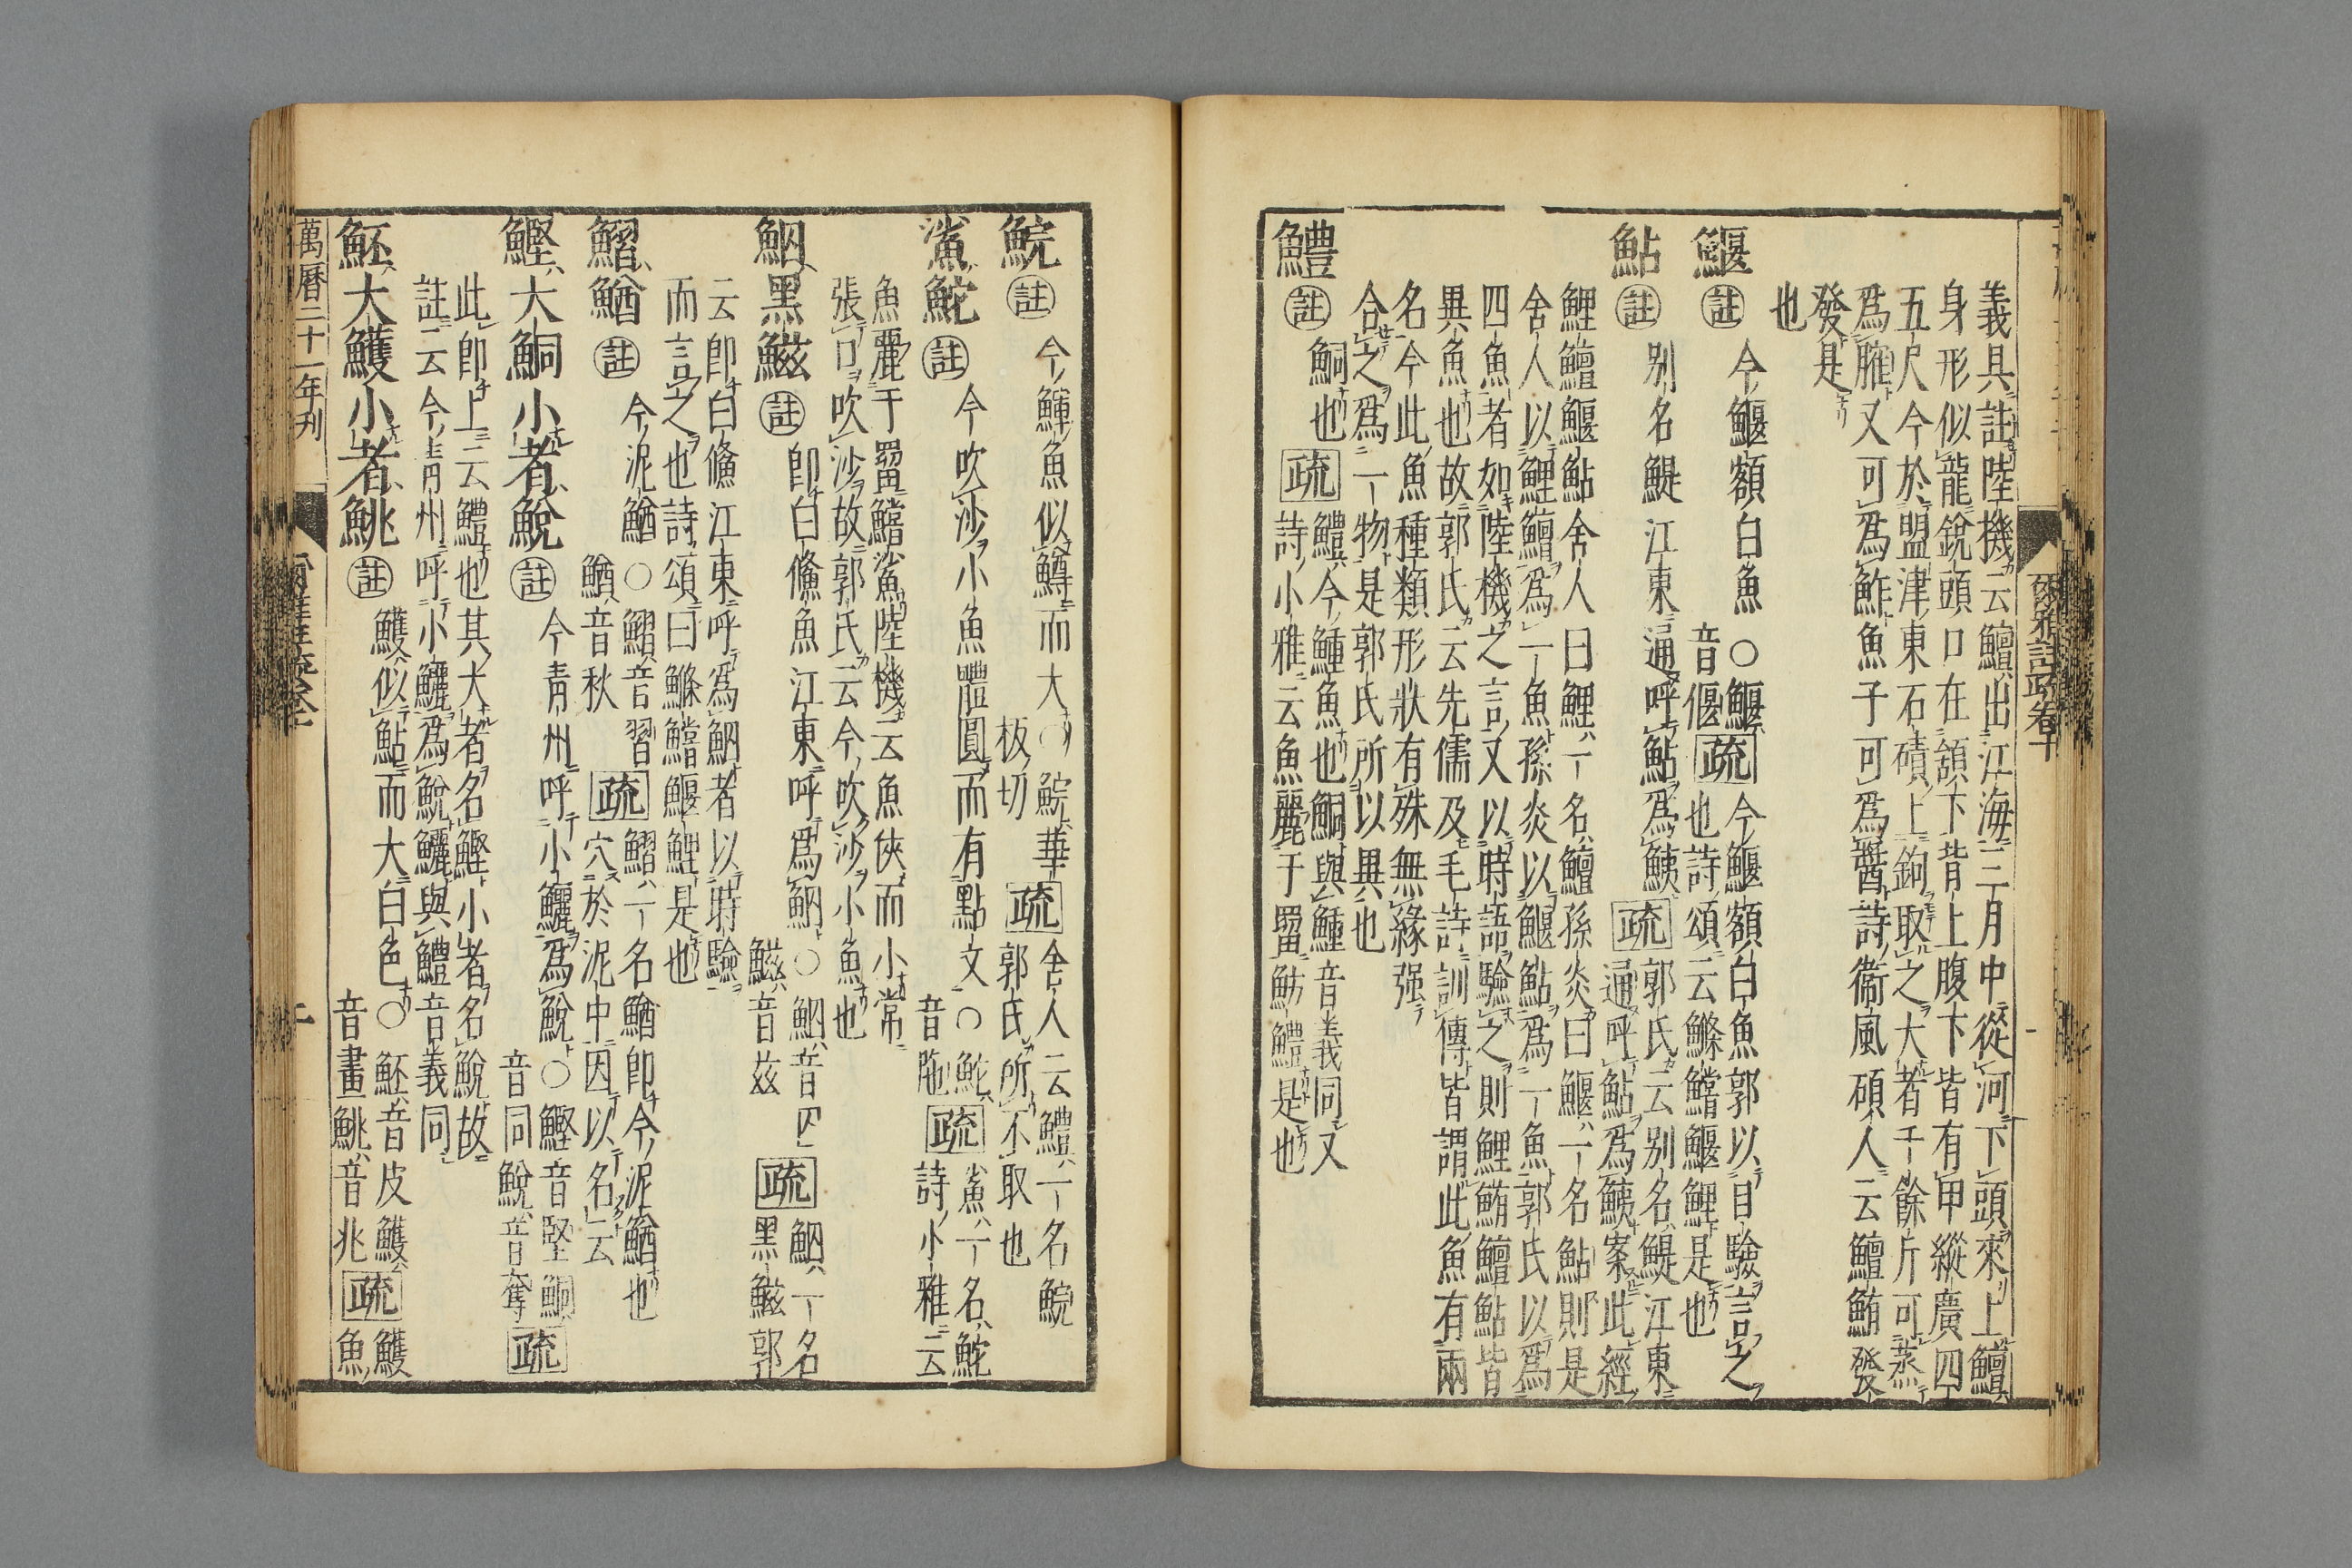 義具註陸機云鱣出江海三月中從河下頭來上鱣
身形似龍銳頭口在頷下背上腹下皆有甲縱廣四
五尺今於盟津東石磧上鉤取之大者千餘斤可蒸
爲臛又可爲鮓魚子可爲醬詩衞風碩人云鱣鮪發
發是
也
鰋註今鰋額白魚○鰋音偃疏今鰋額白魚郭以目驗言之
也詩頌云鰷鱨鰋鯉是也
鮎註別名鯷江東通呼鮎爲鮧疏郭氏云別名鯷江東
通呼鮎爲鮧案此經
鯉鱣鰋鮎舍人曰鯉一名鱣孫炎曰鰋一名鮎則是
舍人以鯉鱣爲一魚孫炎以鰋鮎爲一魚郭氏以爲
四魚者如陸機之言又以時語驗之則鯉鮪鱣鮎皆
異魚也故郭氏云先儒及毛詩訓傳皆謂此魚有兩
名今此魚種類形狀有殊無緣强
合之爲一物是郭氏所以異也
鱧註鮦也疏鱧今鱦魚也鮦與鱦音義同又
詩小雅云魚麗于罶魴鱧是也
爾雅註疏卷十
鯇註今鯶魚似鱒而大○鯇華板切疏舍人云鱧一名鯇
郭氏所不取也
鯊鮀註今吹沙小魚體圓而有點文○鮀音陁疏鯊一名鮀
詩小雅云
魚麗于罶鱨鯊陸機云魚俠而小常
張口吹沙故郭氏云今吹沙小魚也
鮂黑鰦註卽白鯈魚江東呼爲鮂○鮂音囚鰦音兹疏鮂一名
黑鰦郭
云卽白鯈江東呼爲鮂者以時驗
而言之也詩頌曰鰷鱨鰋鯉是也
鰼鰌註今泥鰌○鰼音習鰌音秋疏鰼一名鰌卽今泥鰌也
穴於泥中因以名云
鰹大鮦小者鮵註今青州呼小鱺爲鮵○鰹音堅鮦音同鮵音奪疏
此卽上云鱧也其大者名鰹小者名鮵故
註云今青州呼小鱺爲鮵鱺與鱧音義同
魾大鱯小者鮡註鱯似鮎而大白色○魾音皮鱯音畫鮡音兆疏鱯
魚
萬曆二十一年刊